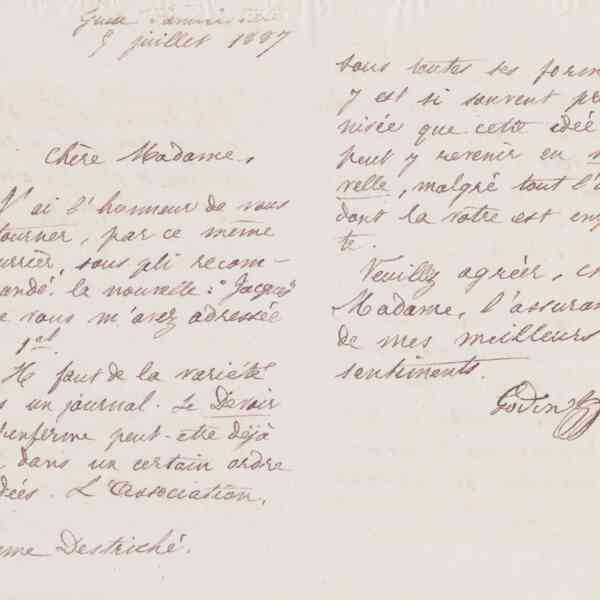 Guise Familistère
5 juillet 1887
Chère Madame,
J'ai l'honneur de vous
tourner, par ce même
urrier, sous pli recom-
andé la nouvelle: "Jacques
e vous m'avez adressée
1er.
Il faut de la variété
s un journal. Le Devoir
enferme peut-etre déjà
dans un certain ordre
dées. L'Association,
me Destriché.
sous toutes ses form
y est si souvent pr
nisée que cette idée
peut y revenir en n
velle, malgré tout l'a
dont la votre est em
te.
Veuillez agréer, c
Madame, l'assuran
de mes meilleurs
sentiments.
Godin